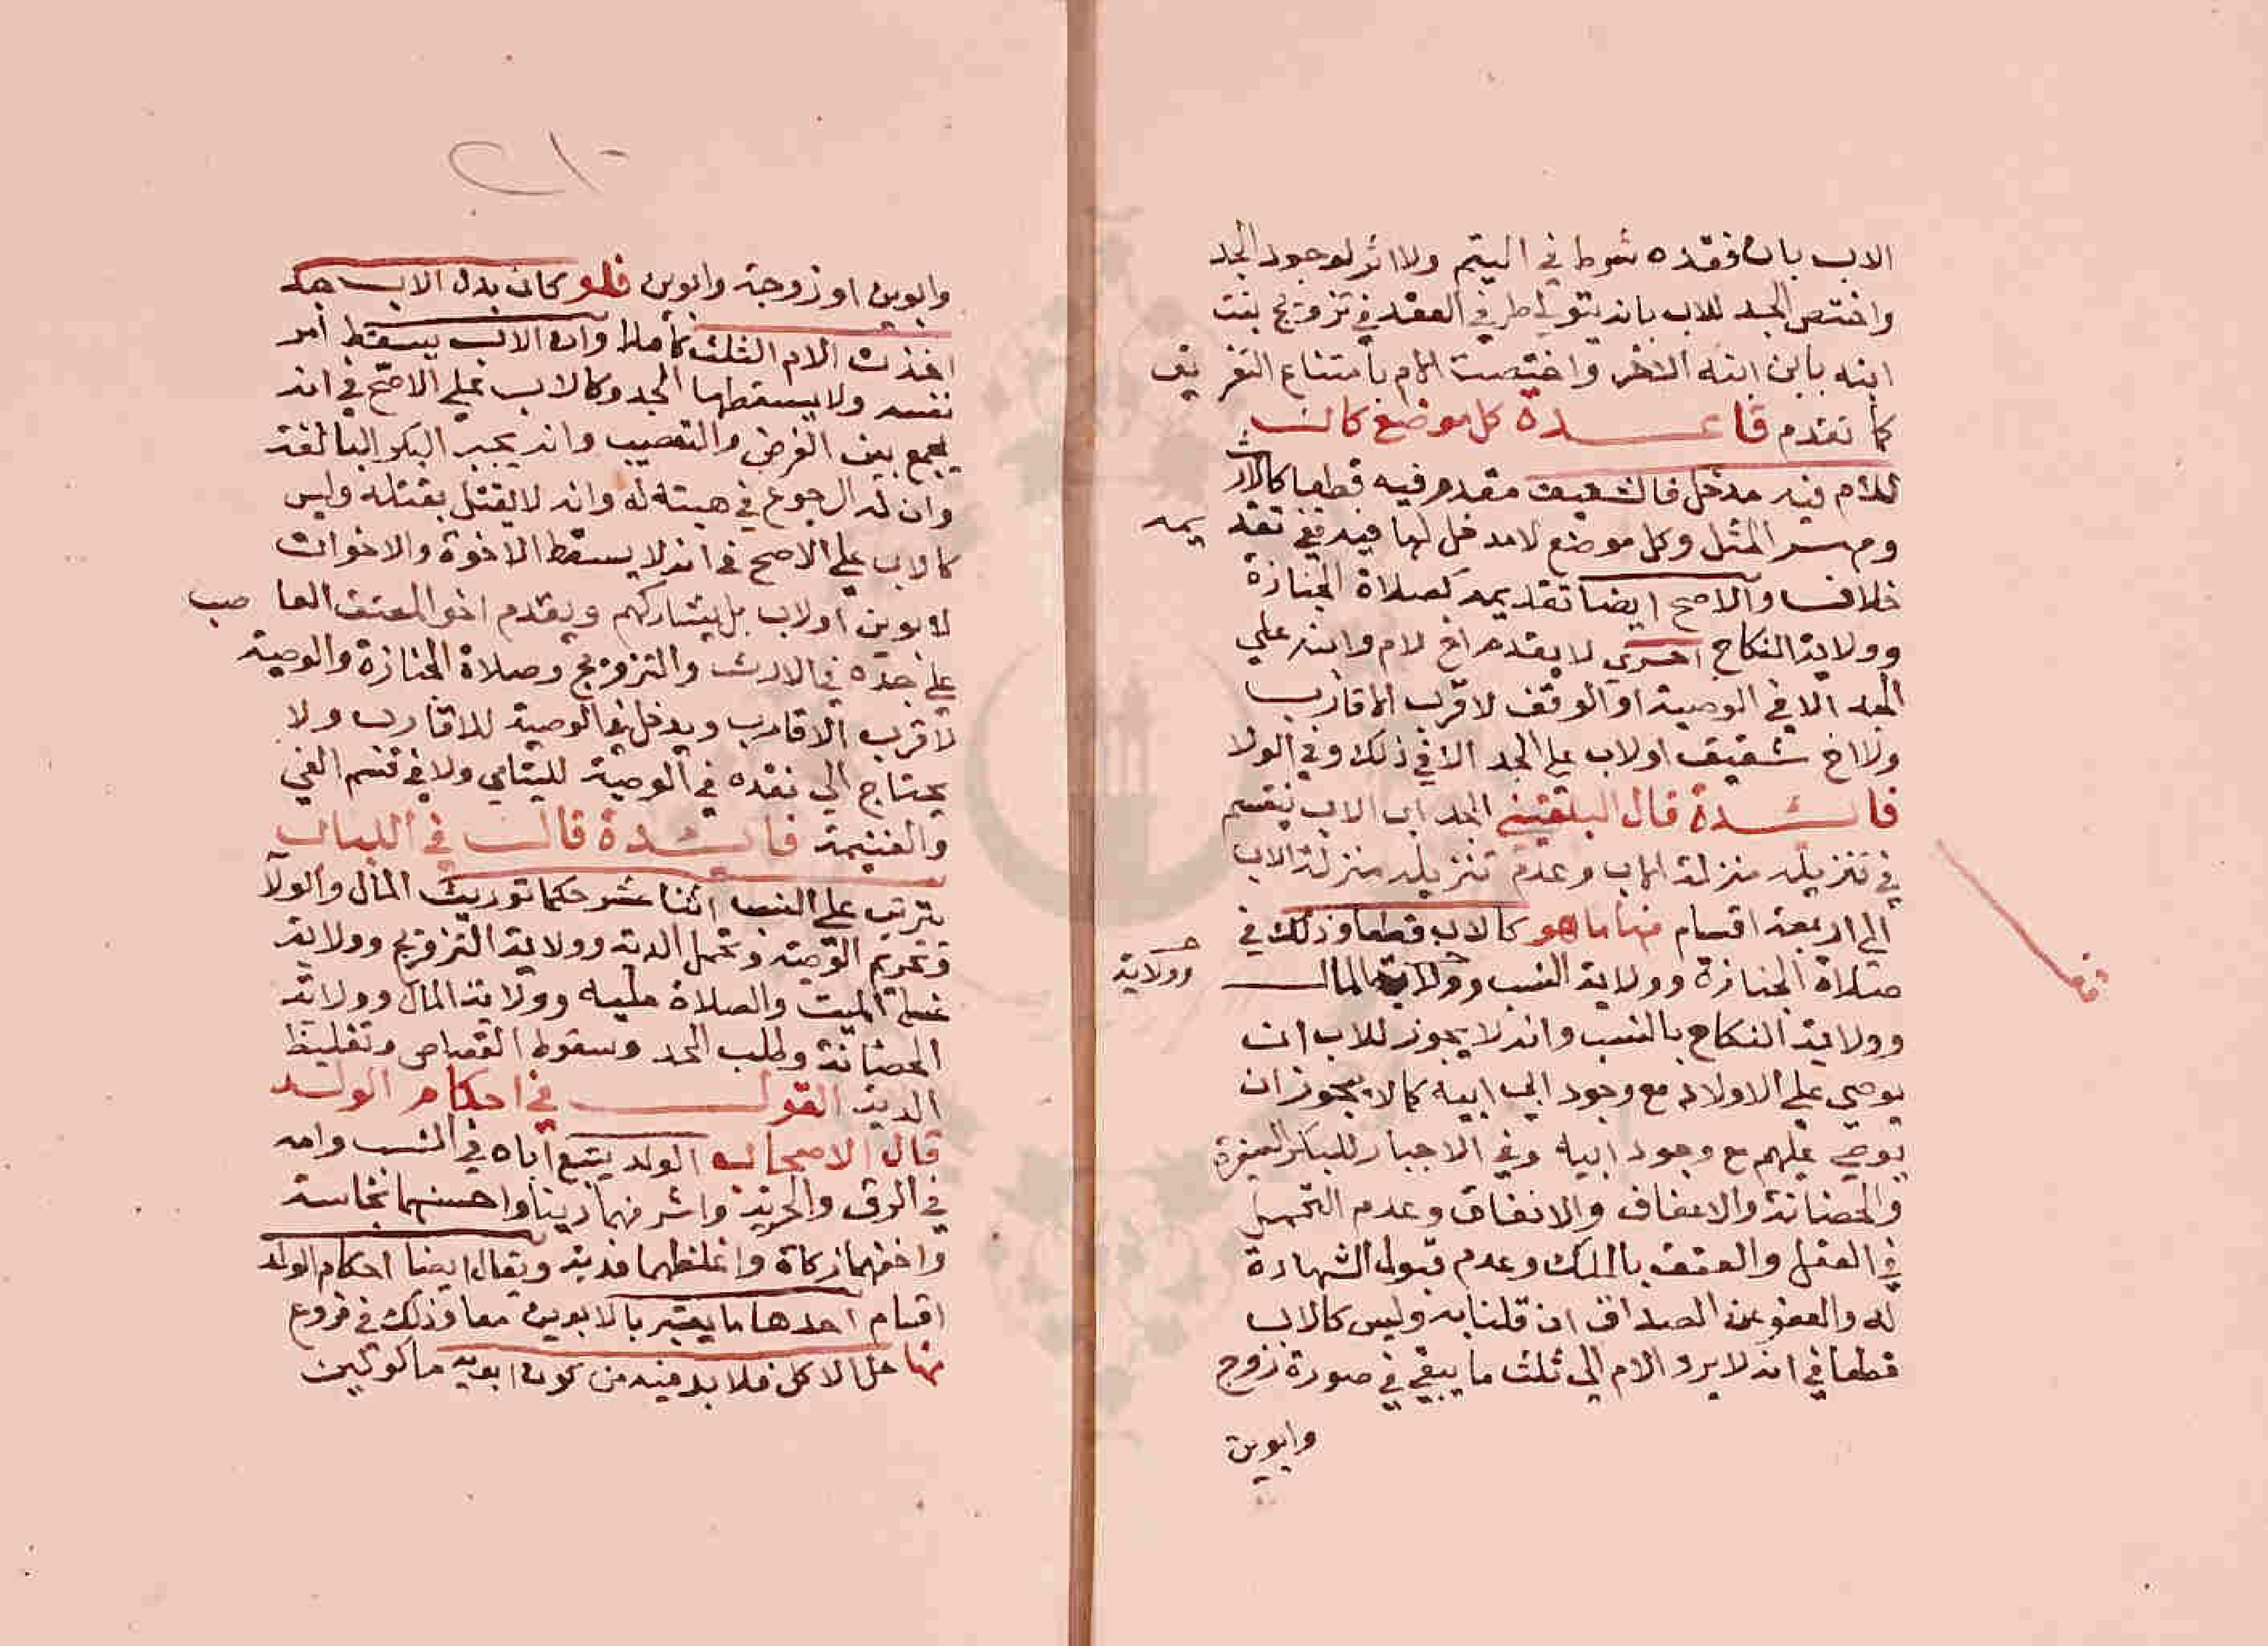 الاب بان فقده شرط في اليتم ولا اثر لوجود الجد
واختص الجد للاب بانه يتولي طرفي العقد في تزويج بنت
ابنه بابن ابنه الاخر واختصت الام بامتناع التفريق
كما تقدم قاعدة كل موضع كان
للام فيه مدخل فالشقيق مقدم فيه قطعا كالارث
ومهر المثل وكل موضع لا مدخل لها فيه ففي تقديمه
خلاف والاصح ايضا تقديمه كصلاة الجنازة
وولاية النكاح اخري لا يقدم اخ لام وابنه علي
الجد الا في الوصية او الوقف لاقرب الاقارب
ولا اخ شقيق اولاب علي الجد الا في ذلك وفي الولا
فائدة قال البلقيني الجد ابي الاب ينقسم
في تنزيله منزلة الاب وعدم تنزيله منزلة الاب
الي اربعة اقسام منها ما هو كالاب قطعا وذلك في
صلاة الجنازة وولاية النسب وولاية المال
وولاية
وولاية النكاح بالنسب وانه لا يجوز للاب ان
يوصي علي الاولاد مع وجود ابي ابيه كما لا يجوز ان
يوصي عليهم مع وجود ابيه وفي الاجبار للبكر الصغيرة
والحضانة والاعفاف والانفاق وعدم التحمل
في العقل والعتق بالملك وعدم قبول الشهادة
له والعفو عن الصداق ان قلنا به وليس كالاب
قطعا في انه لا يرد الام الي ثلث ما يبقي في صورة زوج
وابوين
وابوين او زوجة وابوين فلو كان بدل الاب جد
اخذت الام الثلث كاملا وان الاب يسقط ام
نفسه ولا يسقطها الجد وكالاب علي الاصح في انه
يجمع بين الفرض والتعصيب وانه يجبر البكر البالغة
وان له الرجوع في هبته له وانه لا يقتل بقتله وليس
كالاب علي الاصح في انه لا يسقط الاخوة والاخوات
لابوين اولاب بل يشاركهم ويقدم اخو المعتق العاصب
علي جده في الارث والتزويج وصلاة الجنازة والوصية
لاقرب الاقارب ويدخل في الوصية للاقارب ولا
يحتاج الي نقده في الوصية لليتامي ولا في قسم الفي
والغنيمة فائدة قال في اللباب
يترتب علي النسب اثنا عشر حكما توريث المال والولا
وتحريم الوصية وتحمل الدية وولاية التزويج وولاية
غسل الميت والصلاة عليه وولاية المال وولاية
الحضانة وطلب الحد وسقوط القصاص وتغليظ
الدية القول في احكام الولد
قال الاصحاب الولد يتبع اباه في النسب وامه
في الرق والحرية واشرفهما دينا واخسهما نجاسة
واخفهما زكاة واغلظهما فدية ويقال ايضا احكام الولد
اقسام احدها ما يعتبر بالابوين معا وذلك في فروع
منها حل الاكل فلا بد فيه من كون ابويه ماكولين